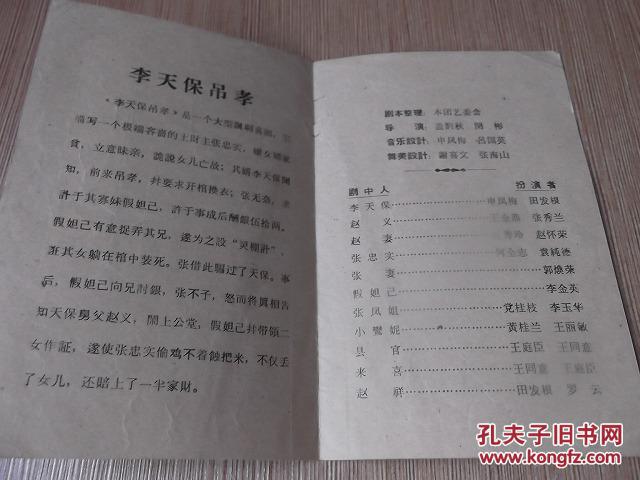 李天保吊孝
《李天保吊孝》是一个大型讽刺喜剧，它
描写一个极端吝嗇的土財主张忠实，嫌女婿家
貧，立意昧亲，詭說女儿亡故；其婿李天保聞
知，前来吊孝，幷要求开棺换衣；张无奈，求
計于其寡妹假妲己，許于事成后酬銀伍拾两。
假妲己有意捉弄其兄，遂为之設“灵棚計”
誑其女躺在棺中装死。张借此騙过了天保。事
后，假妲己向兄討銀，张不予，怒而将眞相告
知天保舅父赵义，鬧上公堂，假妲己幷带領二
女作証，遂使张忠实偷鸡不着蝕把米，不仅丢
了女儿，还賠上了一半家財。
剧本整理：本团艺委会
导演：彬
音乐設計：申凤梅 呂国英
舞美設計：謝喜文 张海山
剧中人 扮演者
李天保……申凤梅 田发根
赵义……张秀兰
赵妻……赵怀荣
张忠实……何全志 袁純德
张妻……郭焕荣
假妲己……李金英
张凤姐……党桂枝 李玉华
小鶯妮……黄桂兰 王丽敏
县官……王庭臣 王同意
来喜……王同意 王庭臣
赵祥……田发根 罗云
孔夫子旧书网
KONGFZ.COM